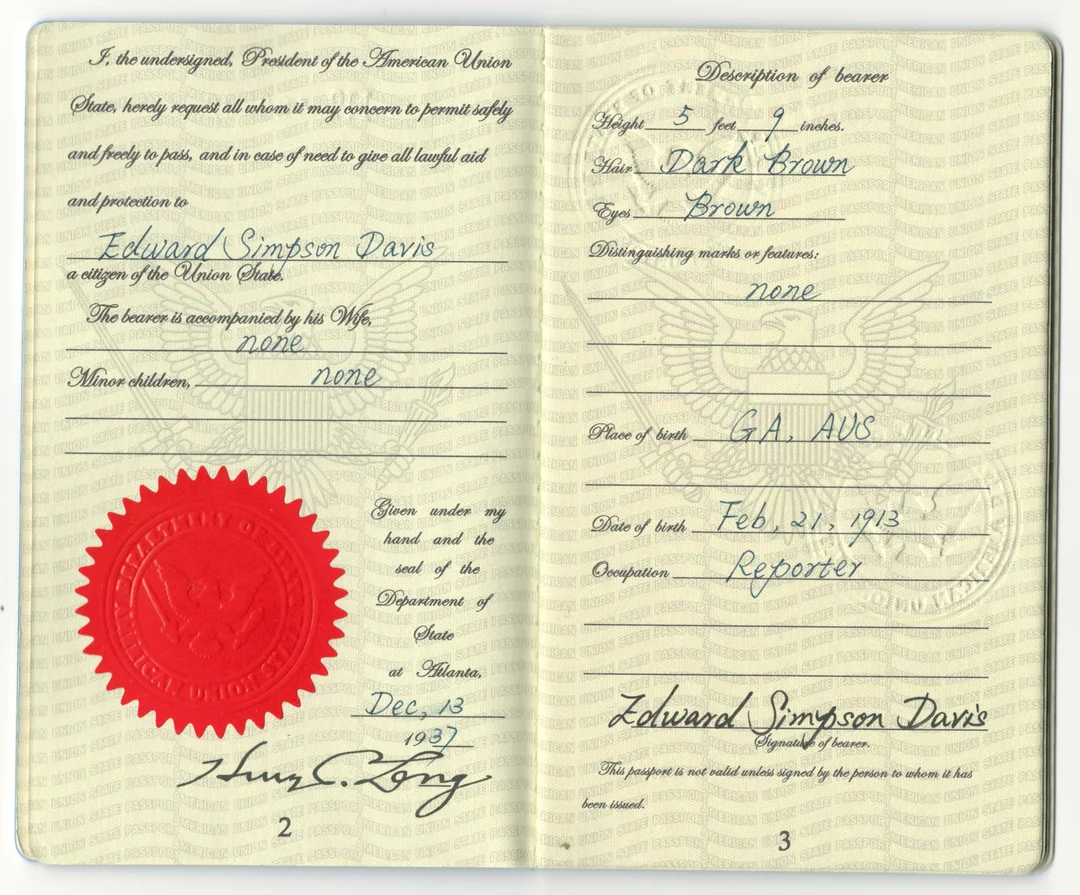 I, the undersigned, President of the American Union
State, herely request all whom it may concern to permit safely
and freely to pass, and in case of need to give all lawful aid
and protection to
Edward Simpson Davis
a citizen of the Union State.
The bearer is accompanied by his Wife,
none
Minor children, none
Given under my
hand and the
seal of the
Department of
State
at Atlanta,
Dec, 13
1937
2
Description of bearer
Height 5 feet 9 inches.
Hair Dark Brown
Eyes Brown
Distinguishing marks or features:
none
Place of birth GA, AUS
Date of birth Feb, 21, 1913
Occupation Reporter
Edward Simpson Davis
Signature of bearer.
This passport is not valid unless signed by the person to whom it has
been issued.
3